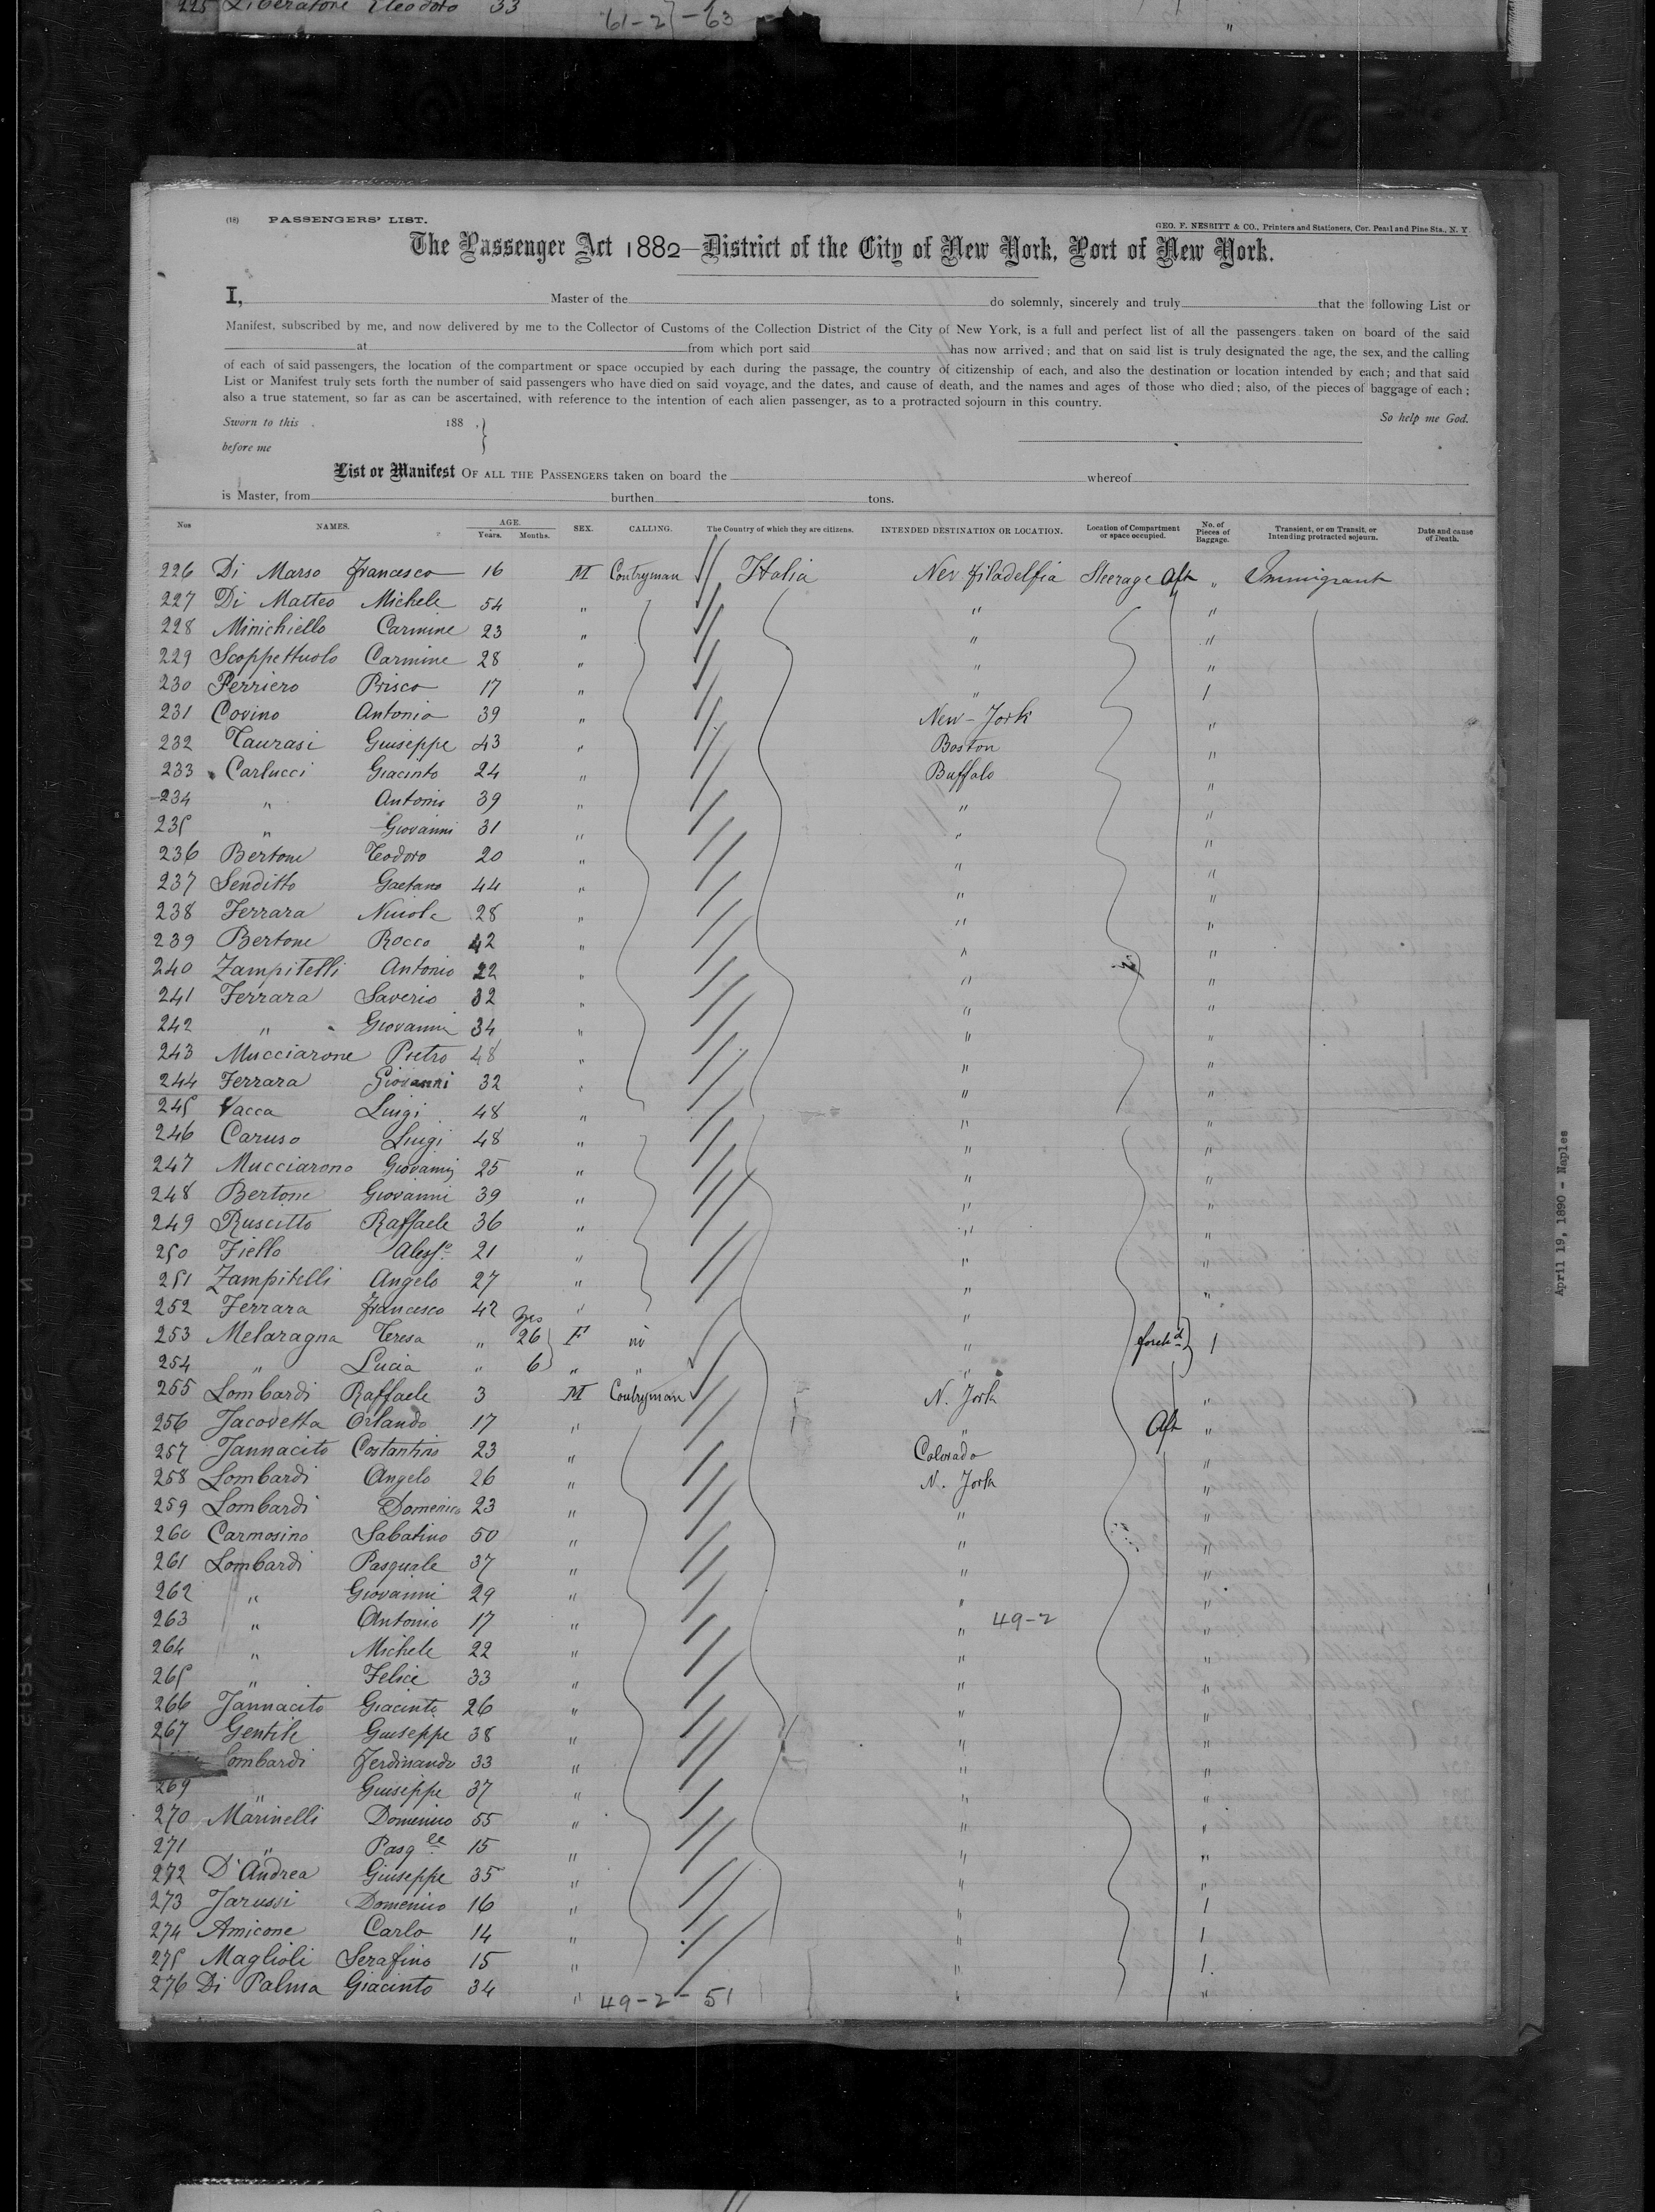 225 Liberatore Eleodoro 33
61-2 - 63
(18) PASSENGERS' LIST.
GEO. F. NESBITT & CO., Printers and Stationers, Cor. Pearl and Pine Sts., N. Y
The Passenger Act 1882—District of the City of New York, Port of New York.
I, Master of the do solemnly, sincerely and truly that the following List or
Manifest, subscribed by me, and now delivered by me to the Collector of Customs of the Collection District of the City of New York, is a full and perfect list of all the passengers taken on board of the said
at from which port said has now arrived; and that on said list is truly designated the age, the sex, and the calling
of each of said passengers, the location of the compartment or space occupied by each during the passage, the country of citizenship of each, and also the destination or location intended by each; and that said
List or Manifest truly sets forth the number of said passengers who have died on said voyage, and the dates, and cause of death, and the names and ages of those who died; also, of the pieces of baggage of each;
also a true statement, so far as can be ascertained, with reference to the intention of each alien passenger, as to a protracted sojourn in this country.
So help me God.
Sworn to this 188 .
before me
List or Manifest OF ALL THE PASSENGERS taken on board the whereof
is Master, from burthen tons.
Nos NAMES. AGE. Years. Months. SEX. CALLING. The Country of which they are citizens. INTENDED DESTINATION OR LOCATION. Location of Compartment or space occupied. No. of Pieces of Baggage. Transient, or en Transit, or Intending protracted sojourn. Date and cause of Death.
226 Di Marso Francesco 16 M Contryman Italia Nev Filadelfia Steerage Aft " Immigrant
227 Di Matteo Michele 54 " " "
228 Minichiello Carmine 23 " " "
229 Scoppettuolo Carmine 28 " " "
230 Perriero Prisco 17 " " 1
231 Covino Antonio 39 " New-Jork "
232 Taurasi Giuseppe 43 " Boston "
233 Carlucci Giacinto 24 " Buffalo "
234 " Antonio 39 " " "
235 " Giovanni 31 " " "
236 Bertone Teodoro 20 " " "
237 Senditto Gaetano 44 " " "
238 Ferrara Nicola 28 " " "
239 Bertone Rocco 42 " " "
240 Zampitelli Antonio 22 " " "
241 Ferrara Saverio 32 " " "
242 " Giovanni 34 " " "
243 Mucciarone Pietro 48 " " "
244 Ferrara Giovanni 32 " " "
245 Vacca Luigi 48 " " "
246 Caruso Luigi 48 " " "
247 Mucciarono Giovanni 25 " " "
248 Bertone Giovanni 39 " " "
249 Ruscitto Raffaele 36 " " "
250 Fiello Aless° 21 " " "
251 Zampitelli Angelo 27 " " "
252 Ferrara Francesco 42 " " "
253 Melaragna Teresa " 26 F no " 1
254 " Lucia " 6 " " "
255 Lombardi Raffaele 3 M Contryman N. Jork "
256 Jacovetta Orlando 17 " " Aft "
257 Jannacito Costantino 23 " Colorado "
258 Lombardi Angelo 26 " N. Jork "
259 Lombardi Domenico 23 " " "
260 Carmosino Sabatino 50 " " "
261 Lombardi Pasquale 37 " " "
262 " Giovanni 29 " " "
263 " Antonio 17 " " 49-2 "
264 " Michele 22 " " "
265 " Felice 33 " " "
266 Jannacito Giacinto 26 " " "
267 Gentile Giuseppe 38 " " "
Lombardi Ferdinando 33 " " "
269 " Giuseppe 37 " " "
270 Marinelli Domenico 55 " " "
271 " Pasqle 15 " " "
272 D'Andrea Giuseppe 35 " " "
273 Jarussi Domenico 16 " " 1
274 Amicone Carlo 14 " " 1
275 Maglioli Serafino 15 " " 1.
276 Di Palma Giacinto 34 " " "
49-2-51
April 19, 1890 - Naples